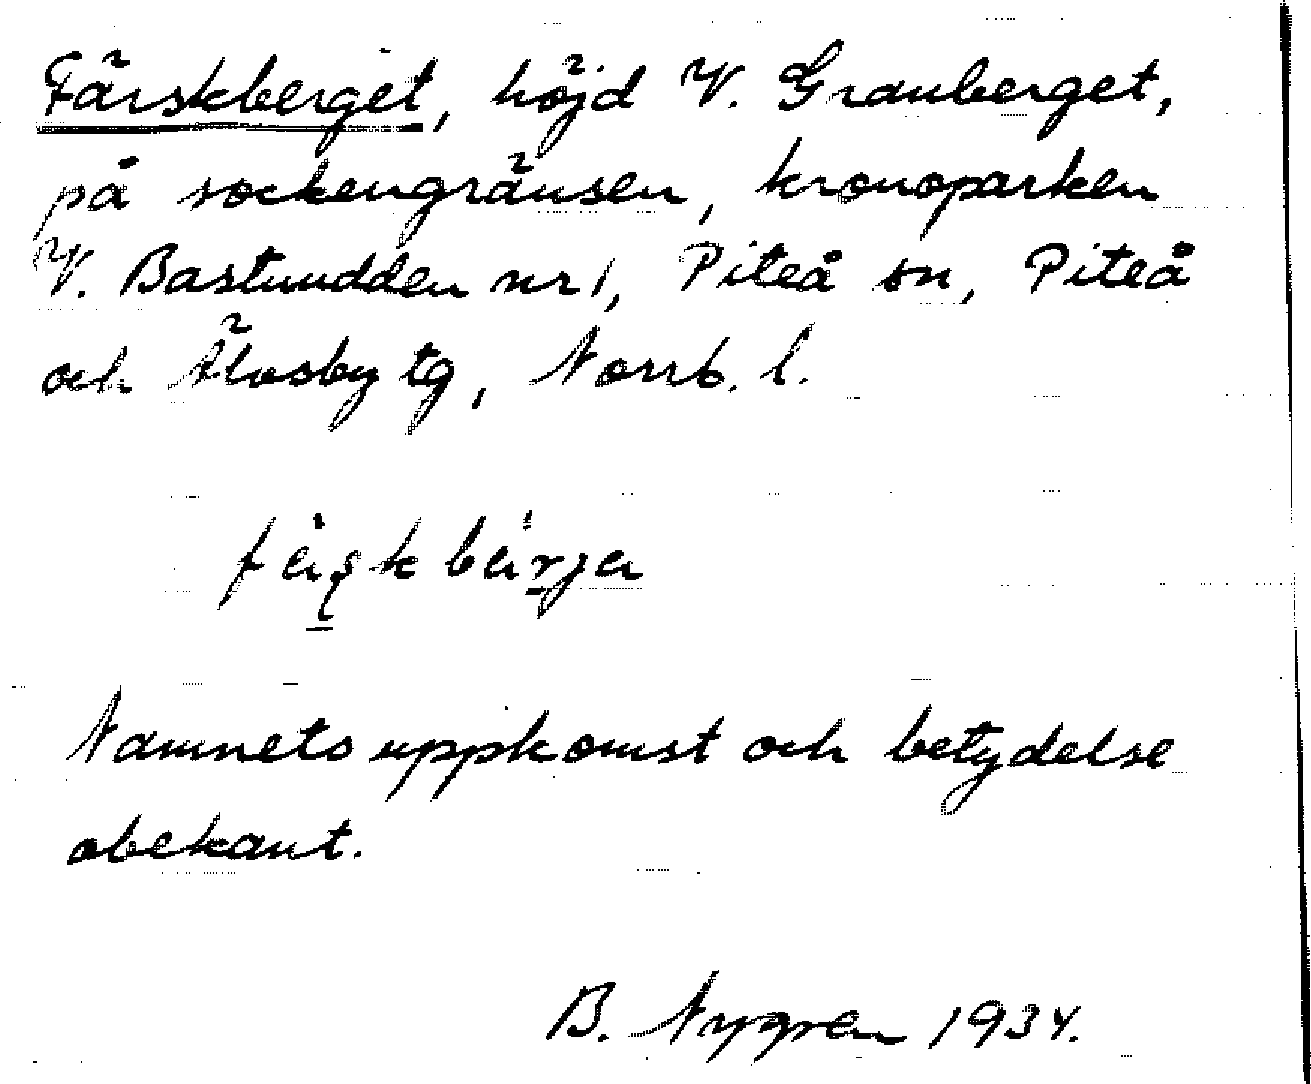 Färskberget, höjd V. Granberget,
på sockengränsen, kronoparken
V. Bastuudden nr 1, Piteå sn, Piteå
och Älvsby tg, Norrb. l.
Namnets uppkomst och betydelse
obekant.
B. Nygren 1934.